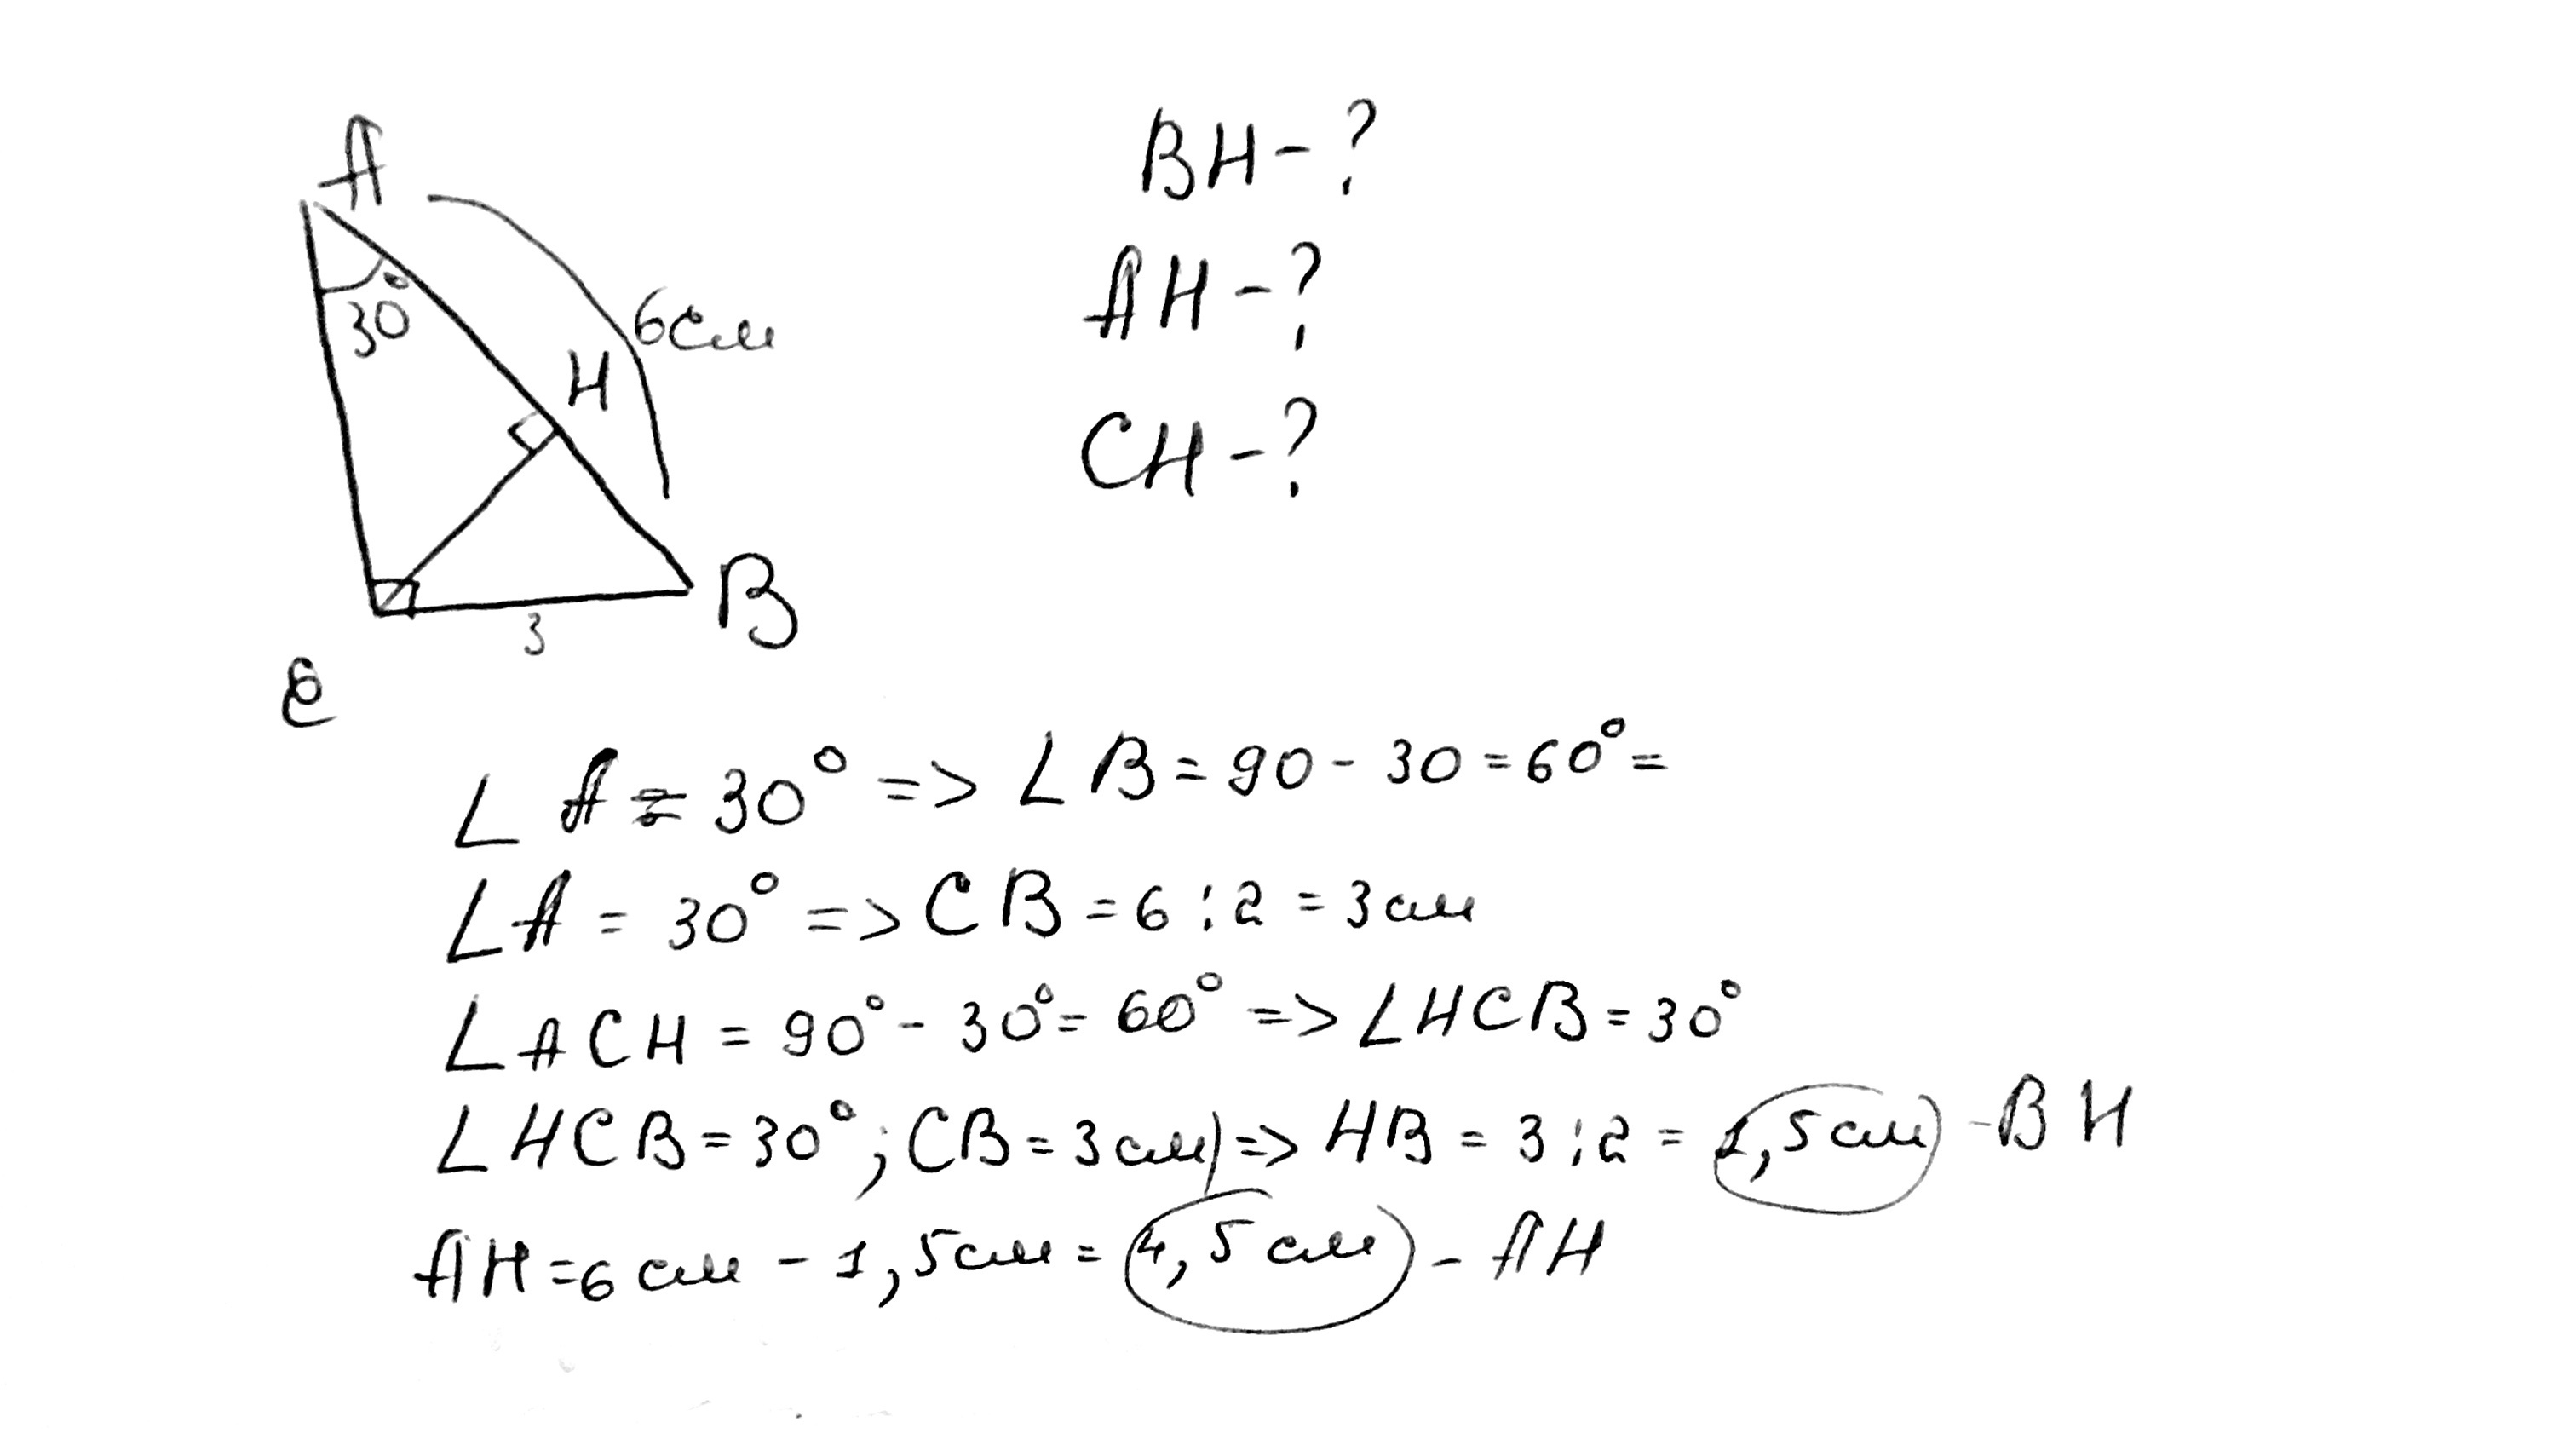 A
30°
H
6см
B
3
C
BH-?
AH-?
CH-?
∠A = 30° => ∠B = 90 - 30 = 60° =
∠A = 30° => CB = 6 : 2 = 3см
∠ACH = 90° - 30° = 60° => ∠HCB = 30°
∠HCB = 30°; CB = 3см => HB = 3 : 2 = 1,5см - BH
AH = 6см - 1,5см = 4,5см - AH